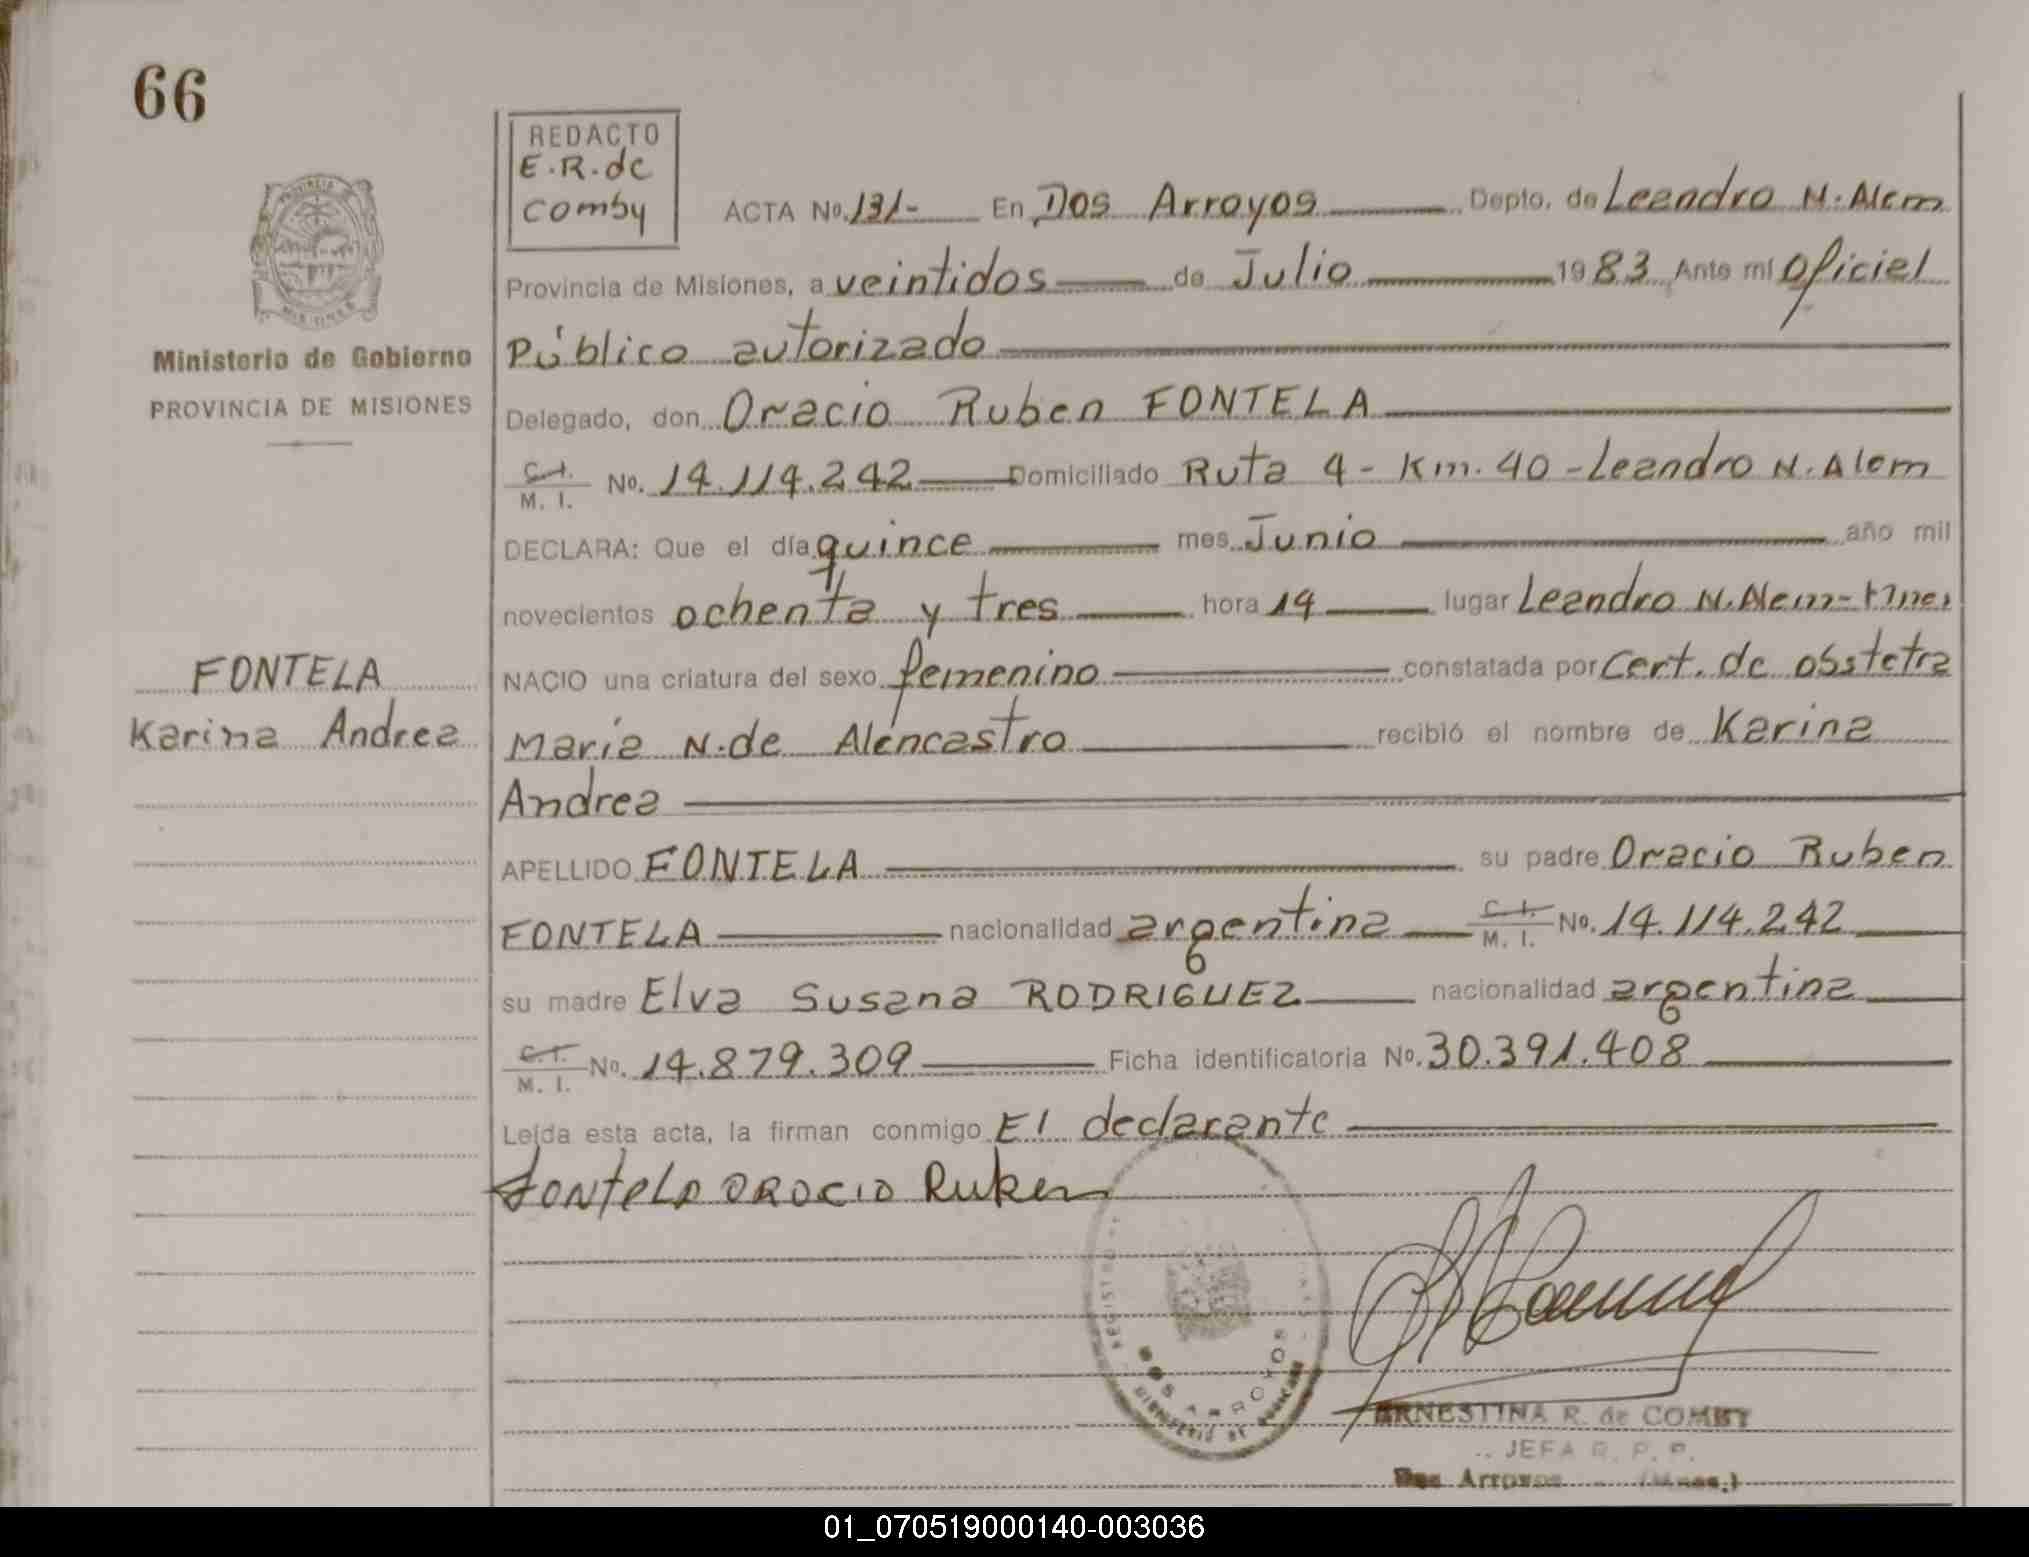 66
REDACTO
E.R. de
Comby
ACTA No. 131- En Dos Arroyos Depto. de Leandro N. Alem
Provincia de Misiones, a veintidos de Julio 1983 Ante mí Oficial
Público autorizado
Ministerio de Gobierno
PROVINCIA DE MISIONES
Delegado, don Oracio Ruben FONTELA
C.I. M. I. No. 14.114.242 Domiciliado Ruta 4 - Km. 40 - Leandro N. Alem
DECLARA: Que el día quince mes Junio año mil
novecientos ochenta y tres hora 14 lugar Leandro N. Alem - Mnes
NACIO una criatura del sexo femenino constatada por Cert. de obstetra
FONTELA
Karina Andrea
María N. de Alencastro recibió el nombre de Karina
Andrea
APELLIDO FONTELA su padre Oracio Ruben
FONTELA nacionalidad argentina C.I. M. I. No. 14.114.242
su madre Elva Susana RODRIGUEZ nacionalidad argentina
C.I. M. I. No. 14.879.309 Ficha identificatoria No. 30.391.408
Leída esta acta, la firman conmigo El declarante
Fontela Orocio Ruben
DOS ARROYOS
ERNESTINA R. de COMBY
JEFA R. P. P.
Dos Arroyos (Mnes.)
01_070519000140-003036